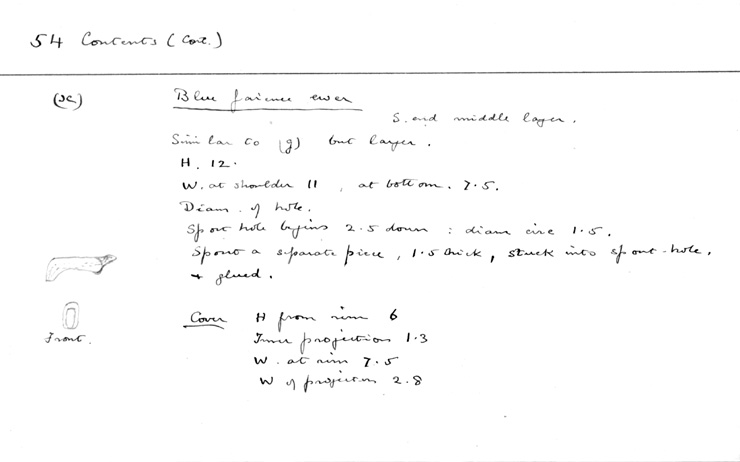 54 Contents (Cont.)
(x)
Blue faience ewer
S. end middle layer.
Similar to (g) but larger.
H. 12.
W. at shoulder 11, at bottom. 7.5.
Diam. of hole.
Spout hole begins 2.5 down : diam circ 1.5.
Spout a separate piece, 1.5 thick, stuck into spout-hole,
+ glued.
Front.
Cover H from rim 6
Inner projection 1.3
W. at rim 7.5
W of projection 2.8